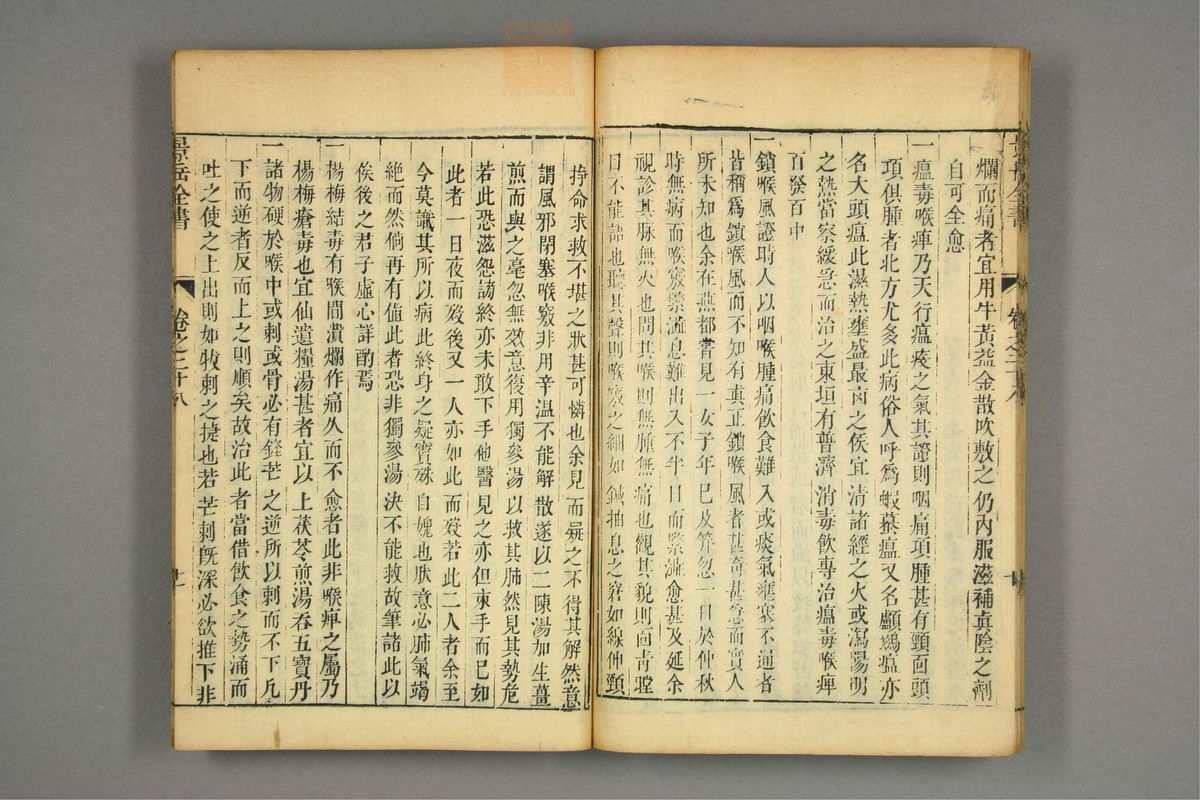 爛而痛者宜用牛黃益金散吹敷之仍內服滋補眞陰之劑
自可全愈
一瘟毒喉痺乃天行瘟疫之氣其證則咽痛項腫甚有頸面頭
項俱腫者北方尤多此病俗人呼爲蝦蟇瘟又名鸕鷀瘟亦
名大頭瘟此濕熱壅盛最凶之候宜清諸經之火或瀉陽明
之熱當察緩急而治之東垣有普濟消毒飲專治瘟毒喉痺
百發百中
一鎖喉風證時人以咽喉腫痛飲食難入或痰氣壅塞不通者
皆稱爲鎖喉風而不知有眞正鎖喉風者甚奇甚急而實人
所未知也余在燕都嘗見一女子年已及笄忽一日於仲秋
時無病而喉竅緊澁息難出入不半日而緊澁愈甚及延余
視診其脉無火也問其喉則無腫無痛也觀其貌則面靑瞠
目不能語也聽其聲則喉竅之細如鍼抽息之窘如線伸頸
掙命求救不堪之狀甚可憐也余見而疑之不得其解然意
謂風邪閉塞喉竅非用辛溫不能解散遂以二陳湯加生薑
煎而與之毫忽無效意復用獨參湯以救其肺然見其勢危
若此恐滋怨謗終亦未敢下手他醫見之亦但束手而已如
此者一日夜而殁後又一人亦如此而殁若此二人者余至
今莫識其所以病此終身之疑竇殊自媿也肰意必肺氣竭
絶而然倘再有値此者恐非獨參湯決不能救故筆諸此以
俟後之君子虛心詳酌焉
一楊梅結毒有喉間潰爛作痛久而不愈者此非喉痺之屬乃
楊梅瘡毒也宜仙遺糧湯甚者宜以上茯苓煎湯吞五寶丹
一諸物哽於喉中或刺或骨必有鋒芒之逆所以刺而不下凡
下而逆者反而上之則順矣故治此者當借飲食之勢涌而
吐之使之上出則如牧刺之捷也若芒刺旣深必欲推下非
景岳全書 卷之二十八